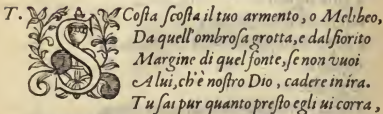 T. SCoſta ſcoſta il tuo armento, o Melibeo,
Da quell'ombroſa grotta, e dal fiorito
Margine di quel fonte, ſe non vuoi
A lui, ch'è noſtro Dio, cadere in ira.
Tu ſai pur quanto preſto egli ui corra,